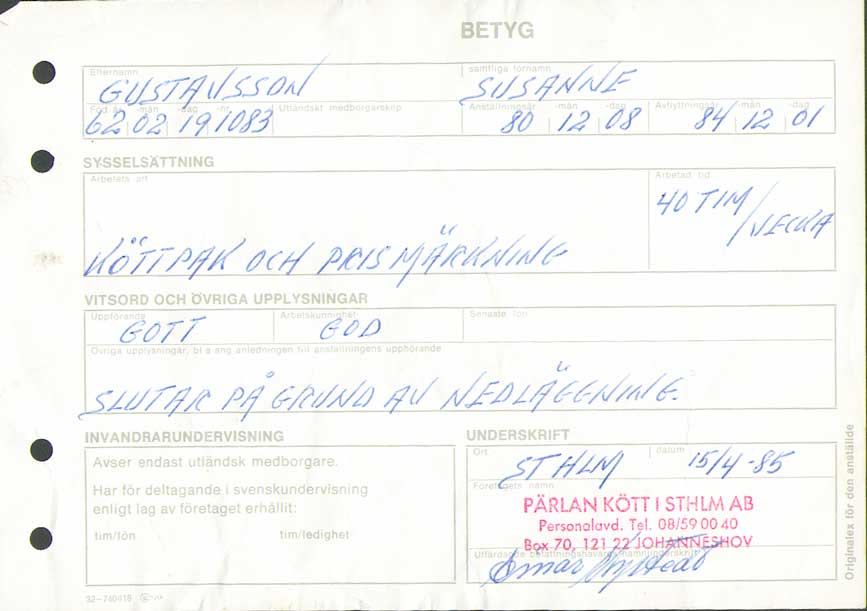 BETYG
Efternamn samtliga förnamn
GUSTAVSSON SUSANNE
Född år -mån -dag -nr Utländskt medborgarskap Anställningsår -mån -dag Avflyttningsår -mån -dag
62 02 19 1083 80 12 08 84 12 01
SYSSELSÄTTNING
Arbetets art Arbetad tid
40 TIM
/VECKA
KÖTTPAK OCH PRISMÄRKNING
VITSORD OCH ÖVRIGA UPPLYSNINGAR
Uppförande Arbetskunnighet Senaste lön
GOTT GOD
Övriga upplysningar, bl a ang anledningen till anställningens upphörande
SLUTAR PÅ GRUND AV NEDLÄGGNING.
INVANDRARUNDERVISNING
Avser endast utländsk medborgare.
Har för deltagande i svenskundervisning
enligt lag av företaget erhållit:
tim/lön tim/ledighet
UNDERSKRIFT
Ort datum
STHLM 15/4-85
Företagets namn
PÄRLAN KÖTT I STHLM AB
Personalavd. Tel. 08/59 00 40
Box 70, 121 22 JOHANNESHOV
Utfärdande befattningshavares namnunderskrift
Einar
32-740418
Originalex för den anställde